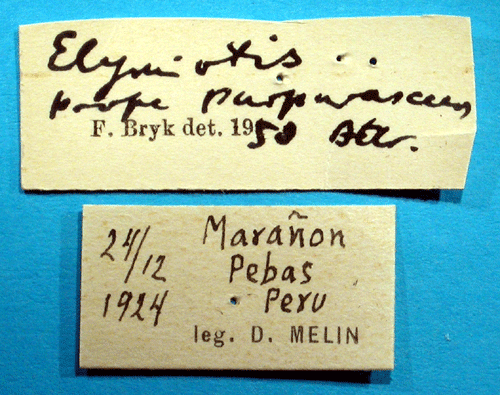 Elymiotis
prope purpurascens
F. Bryk det. 1950
24/12 Marañon
Pebas
1924 Peru
leg. D. MELIN